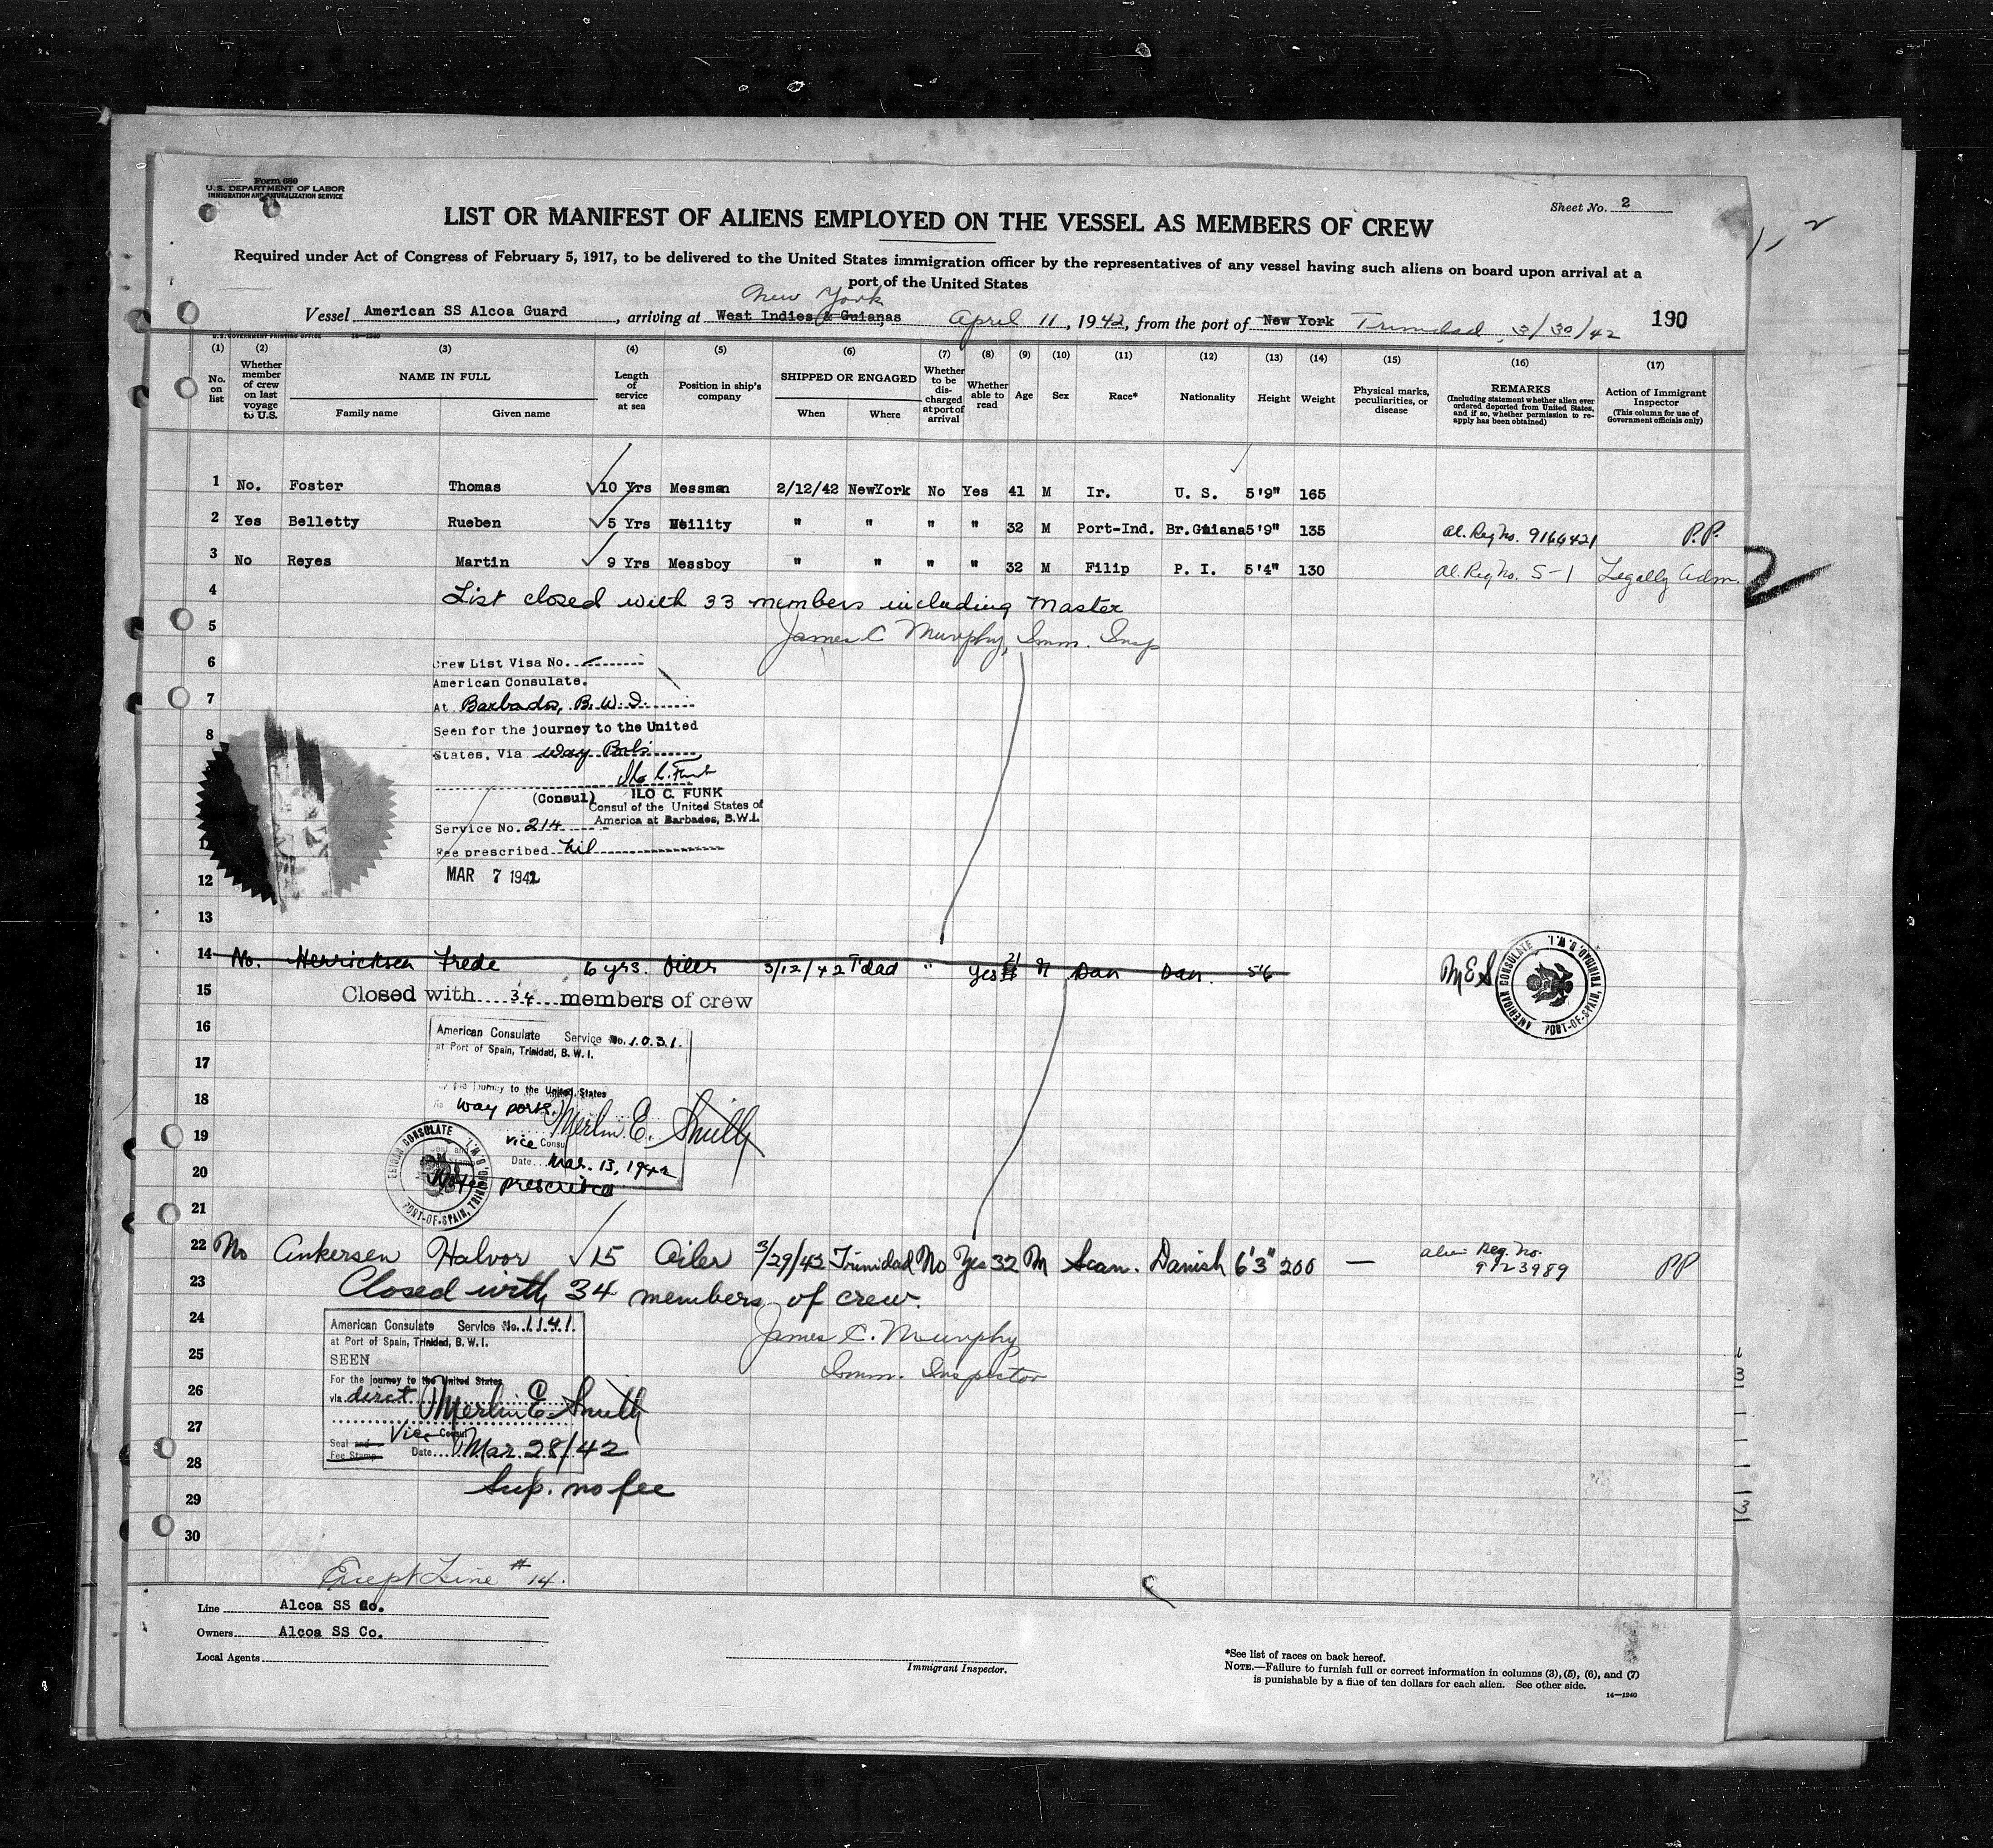 Form 680
U.S. DEPARTMENT OF LABOR
IMMIGRATION AND NATURALIZATION SERVICE
Sheet No. 2
LIST OR MANIFEST OF ALIENS EMPLOYED ON THE VESSEL AS MEMBERS OF CREW
Required under Act of Congress of February 5, 1917, to be delivered to the United States immigration officer by the representatives of any vessel having such aliens on board upon arrival at a
port of the United States
New York
Vessel American SS Alcoa Guard, arriving at West Indies & Guianas April 11, 1942, from the port of New York Trinidad, 3/30/42 190
U.S. GOVERNMENT PRINTING OFFICE 14-1240
(1) (2) (3) (4) (5) (6) (7) (8) (9) (10) (11) (12) (13) (14) (15) (16) (17)
No. on list
Whether member of crew on last voyage to U.S.
NAME IN FULL
Family name Given name
Length of service at sea
Position in ship's company
SHIPPED OR ENGAGED
When Where
Whether to be discharged at port of arrival
Whether able to read
Age Sex Race* Nationality Height Weight
Physical marks, peculiarities, or disease
REMARKS
(Including statement whether alien ever ordered deported from United States, and if so, whether permission to reapply has been obtained)
Action of Immigrant Inspector
(This column for use of Government officials only)
1 No. Foster Thomas 10 Yrs Messman 2/12/42 NewYork No Yes 41 M Ir. U. S. 5'9" 165
2 Yes Belletty Rueben 5 Yrs Utility " " " " 32 M Port-Ind. Br.Guiana 5'9" 135 Al. Reg No. 9166421 P.P.
3 No Reyes Martin 9 Yrs Messboy " " " " 32 M Filip P. I. 5'4" 130 Al. Reg No. S-1 Legally Adm.
4 List closed with 33 members including Master
5 James C Murphy, Imm. Insp
6 Crew List Visa No.
American Consulate.
7 At Barbados, B.W.I.
8 Seen for the journey to the United
States, Via Way Ports
Ilo C. Funk
(Consul) ILO C. FUNK
Consul of the United States of
America at Barbados, B.W.I.
Service No. 214
Fee prescribed Nil
12 MAR 7 1942
13
14 No. Henricksen Frede 6 yrs. Oiler 3/12/42 T'dad " Yes 21 M Dan Dan. 5'6 MES
AMERICAN CONSULATE PORT-OF-SPAIN, TRINIDAD, B.W.I.
15 Closed with 34 members of crew
16 American Consulate Service No. 1031.
at Port of Spain, Trinidad, B. W. I.
17
journey to the United States
18 way ports. Merlin E. Smith
19 vice Consul
AMERICAN CONSULATE PORT-OF-SPAIN, TRINIDAD, B.W.I.
20 Date Mar. 13, 1942
No fee prescribed
21
22 No Ankersen Halvor 15 Oiler 3/29/42 Trinidad No Yes 32 M Scan. Danish 6'3" 200 — Alien Reg. No. 9123989 PP
23 Closed with 34 members of crew.
24 American Consulate Service No. 1141. James C. Murphy
at Port of Spain, Trinidad, B. W. I.
25 SEEN Imm. Inspector
For the journey to the United States
26 via direct Merlin E. Smith
27 Vice Consul
Seal and Fee Stamp Date Mar. 28/42
28 Sup. no fee
29
30
Except Line #14.
Line Alcoa SS Co.
Owners Alcoa SS Co.
Local Agents
Immigrant Inspector.
*See list of races on back hereof.
NOTE.—Failure to furnish full or correct information in columns (3), (5), (6), and (7)
is punishable by a fine of ten dollars for each alien. See other side.
14-1240